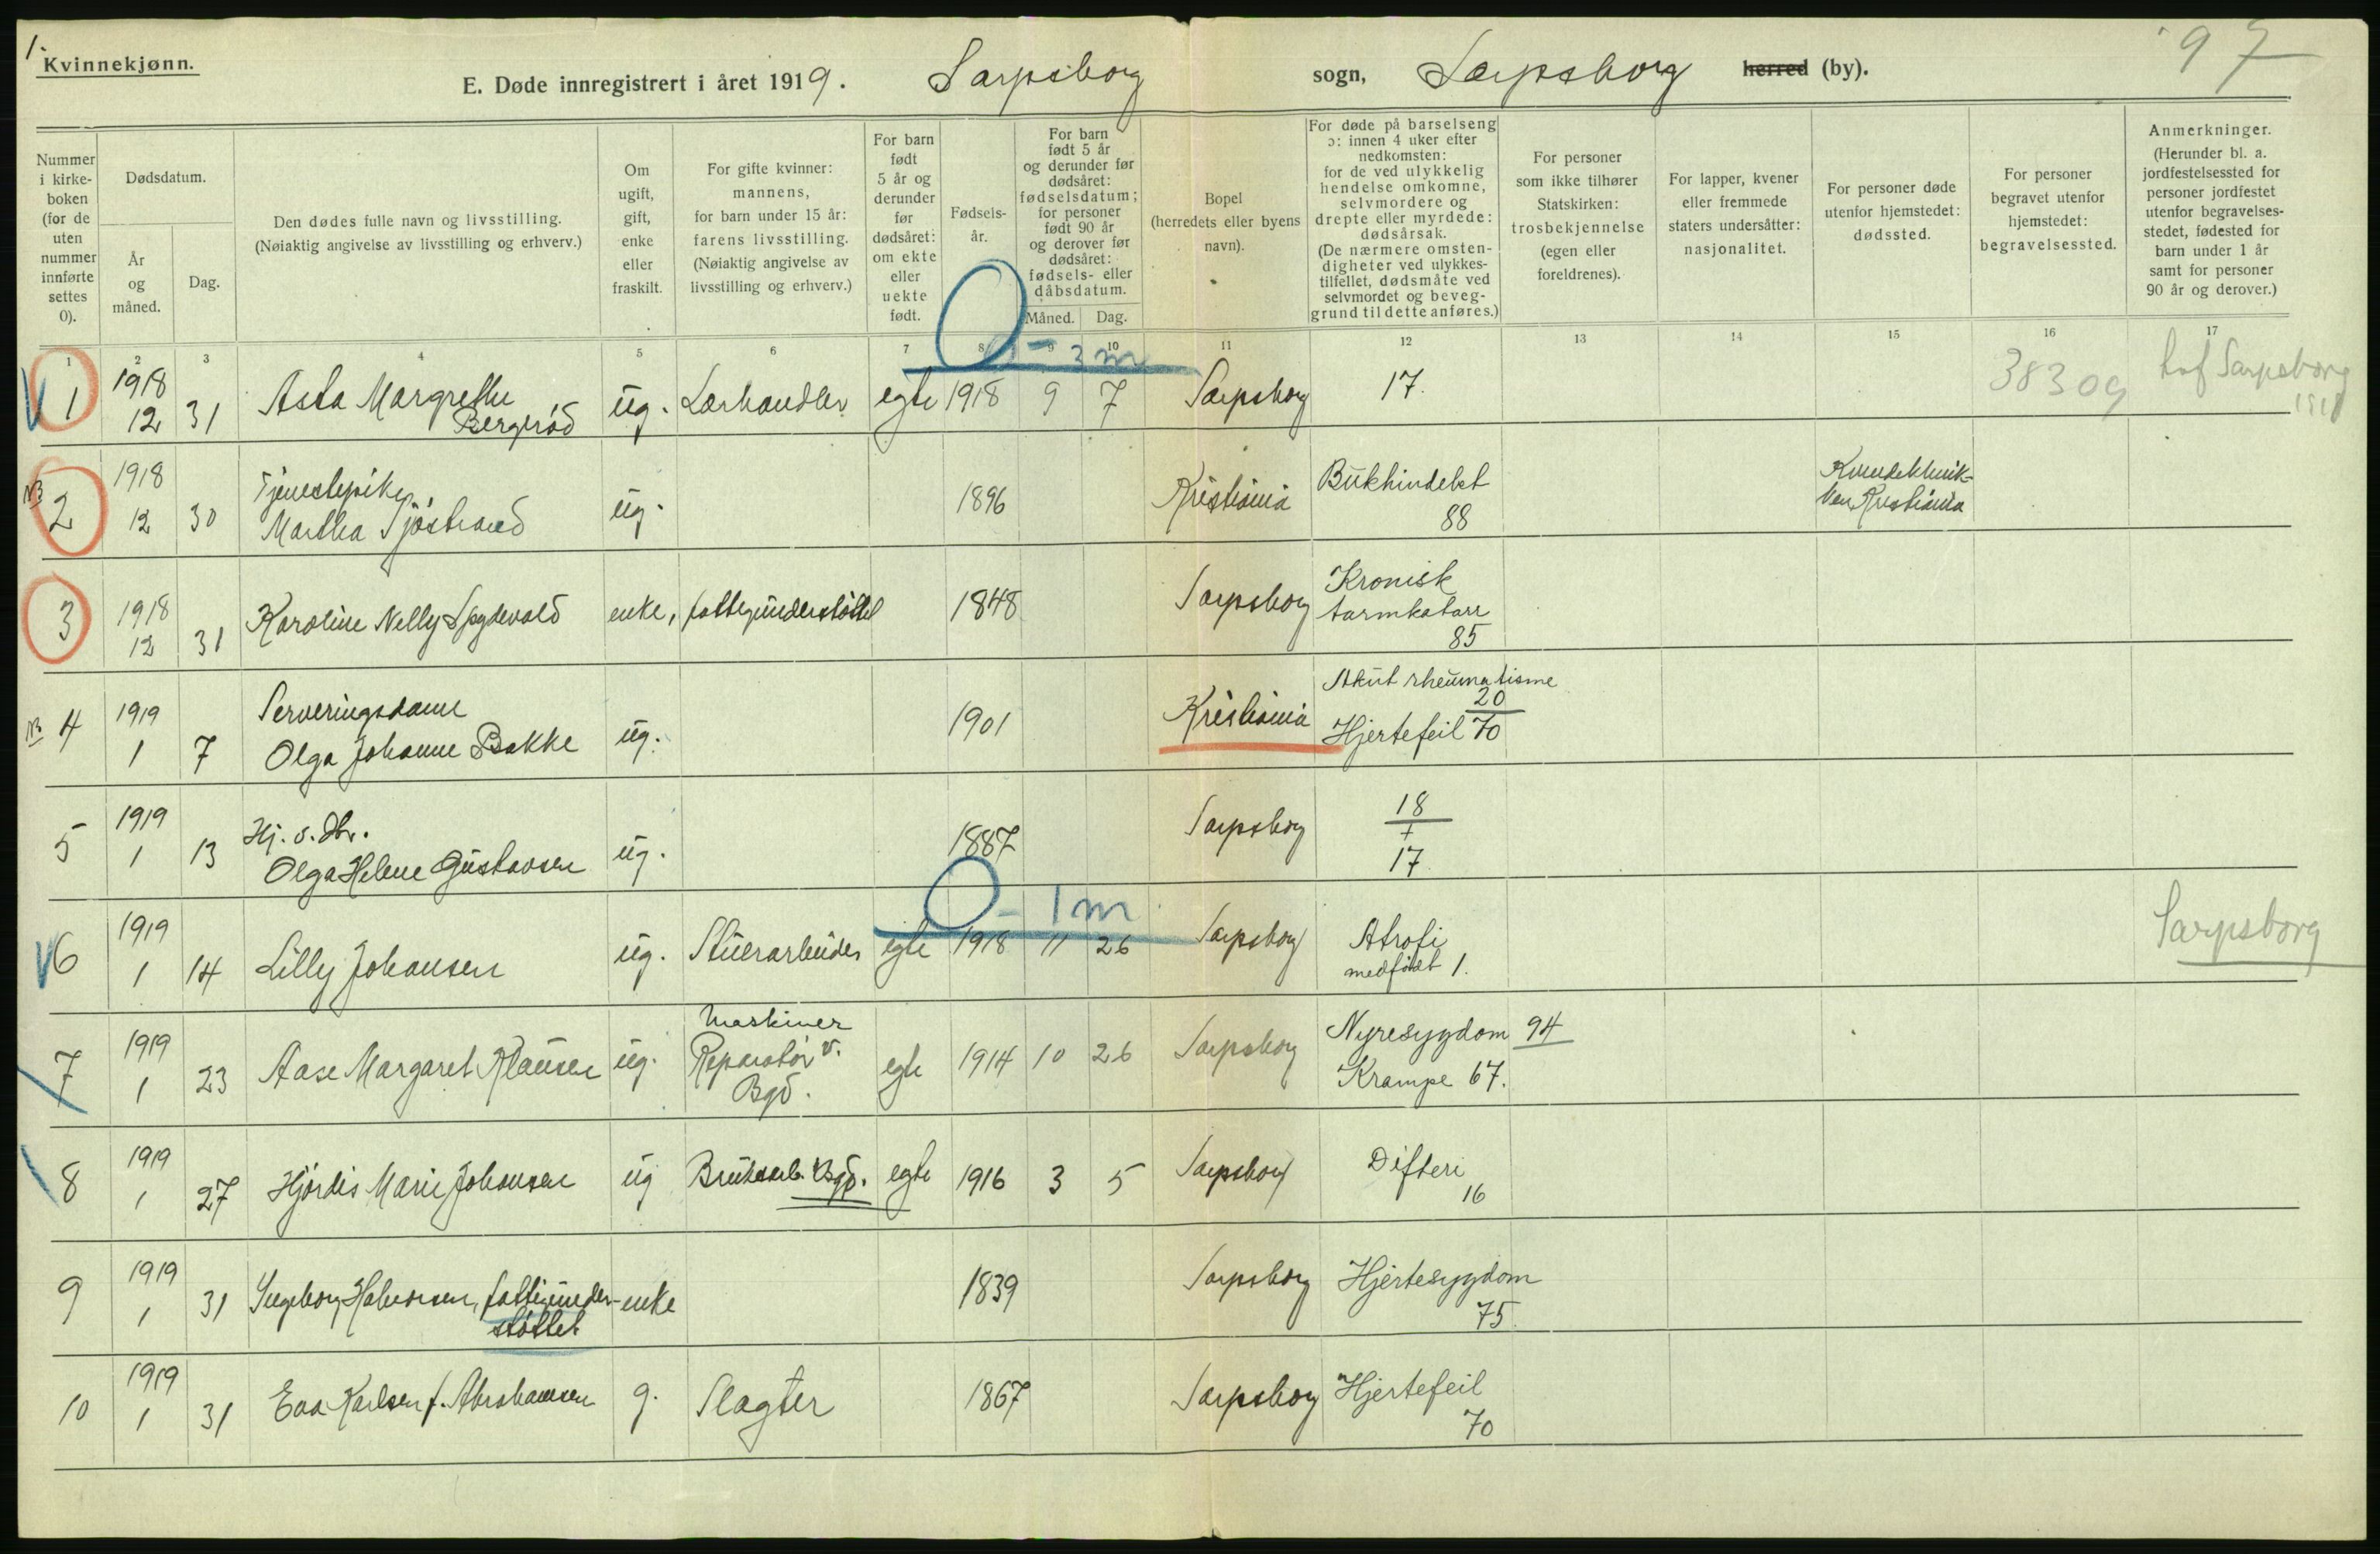 1.
Kvinnekjønn.
E. Døde innregistrert i året 1919. Sarpsborg sogn, Sarpsborg herred (by).
97
Nummer i kirke-boken (for de uten nummer innførte settes 0).
Dødsdatum.
År og måned.
Dag.
Den dødes fulle navn og livsstilling.
(Nøiaktig angivelse av livsstilling og erhverv.)
Om ugift, gift, enke eller fraskilt.
For gifte kvinner: mannens, for barn under 15 år: farens livsstilling. (Nøiaktig angivelse av livsstilling og erhverv.)
For barn født 5 år og derunder før dødsåret: om ekte eller uekte født.
Fødsels-år.
For barn født 5 år og derunder før dødsåret: fødselsdatum; for personer født 90 år og derover før dødsåret: fødsels- eller dåbsdatum.
Måned. Dag.
Bopel (herredets eller byens navn).
For døde på barselseng ɔ: innen 4 uker efter nedkomsten: for de ved ulykkelig hendelse omkomne, selvmordere og drepte eller myrdede: dødsårsak. (De nærmere omsten-digheter ved ulykkes-tilfellet, dødsmåte ved selvmordet og beveg-grund til dette anføres.)
For personer som ikke tilhører Statskirken: trosbekjennelse (egen eller foreldrenes).
For lapper, kvener eller fremmede staters undersåtter: nasjonalitet.
For personer døde utenfor hjemstedet: dødssted.
For personer begravet utenfor hjemstedet: begravelsessted.
Anmerkninger. (Herunder bl. a. jordfestelsessted for personer jordfestet utenfor begravelses-stedet, fødested for barn under 1 år samt for personer 90 år og derover.)
1 2 3 4 5 6 7 8 9 10 11 12 13 14 15 16 17
0 - 3 m
1 1918 12 31 Asta Margrethe Bergerød ug. Lærhandler egte 1918 9 7 Sarpsborg 17. 38309 Sarpsborg 1918
NB 2 1918 12 30 Tjenestepike Martha Sjøstrand ug. 1896 Kristiania Bukhindebet 88 Kvindeklinik-ken, Kristiania
3 1918 12 31 Karoline Nelly Spydevold enke, fattigunderstøttet 1848 Sarpsborg Kronisk tarmkatarr 85
NB 4 1919 1 7 Serveringsdame Olga Johanne Bakke ug. 1901 Kristiania Akut rheumatisme 20 Hjertefeil 70
5 1919 1 13 Hj. v. dtr. Olga Helene Gustavsen ug. 1887 Sarpsborg 18 + 17
0 - 1 m
6 1919 1 14 Lilly Johansen ug. Stuerarbeider egte 1918 11 26 Sarpsborg Atrofi medfødt 1. Sarpsborg
7 1919 1 23 Aase Margaret Klausen ug. Maskiner Reparatør v. Bgd. egte 1914 10 26 Sarpsborg Nyresygdom 94 Krampe 67.
8 1919 1 27 Hjørdis Marie Johansen ug Bruksarb. Bgd. egte 1916 3 5 Sarpsborg Difteri 16
9 1919 1 31 Ingeborg Halvorsen, fattigunder-støttet enke 1839 Sarpsborg Hjertesygdom 75.
10 1919 1 31 Eva Karlsen f. Abrahamsen g. Slagter 1867 Sarpsborg Hjertefeil 70